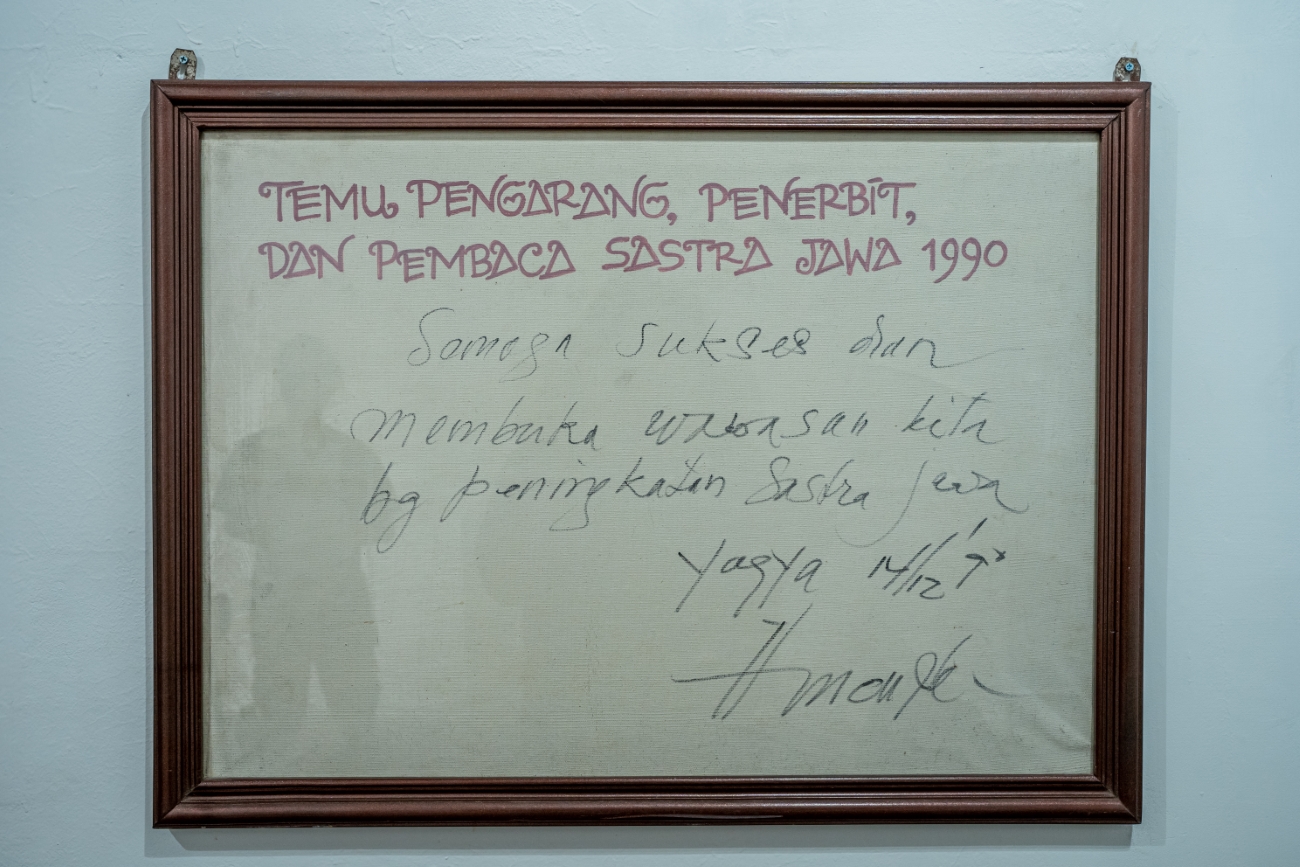 TEMU PENGARANG, PENERBIT,
DAN PEMBACA SASTRA JAWA 1990
Semoga sukses dan
membuka wawasan kita
bg peningkatan Sastra Jawa
Yogya 14/12